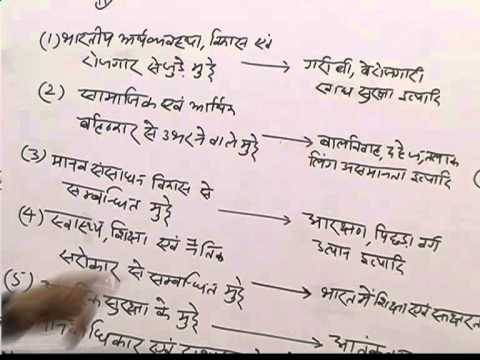 (1) भारतीय अर्थव्यवस्था, विकास एवं
रोजगार से जुड़े मुद्दे → गरीबी, बेरोजगारी
खाद्य सुरक्षा इत्यादि
(2) सामाजिक एवं आर्थिक
बहिष्कार से उभरने वाले मुद्दे → बालविवाह, दहेज, तलाक
लिंग असमानता इत्यादि
(3) मानव संसाधन विकास से
सम्बन्धित मुद्दे → आरक्षण, पिछड़ा वर्ग
उत्थान इत्यादि
(4) स्वास्थ्य, शिक्षा एवं नैतिक
सरोकार से सम्बन्धित मुद्दे → भारत में शिक्षा एवं साक्षरता
(5) सुरक्षा के मुद्दे →
एवं